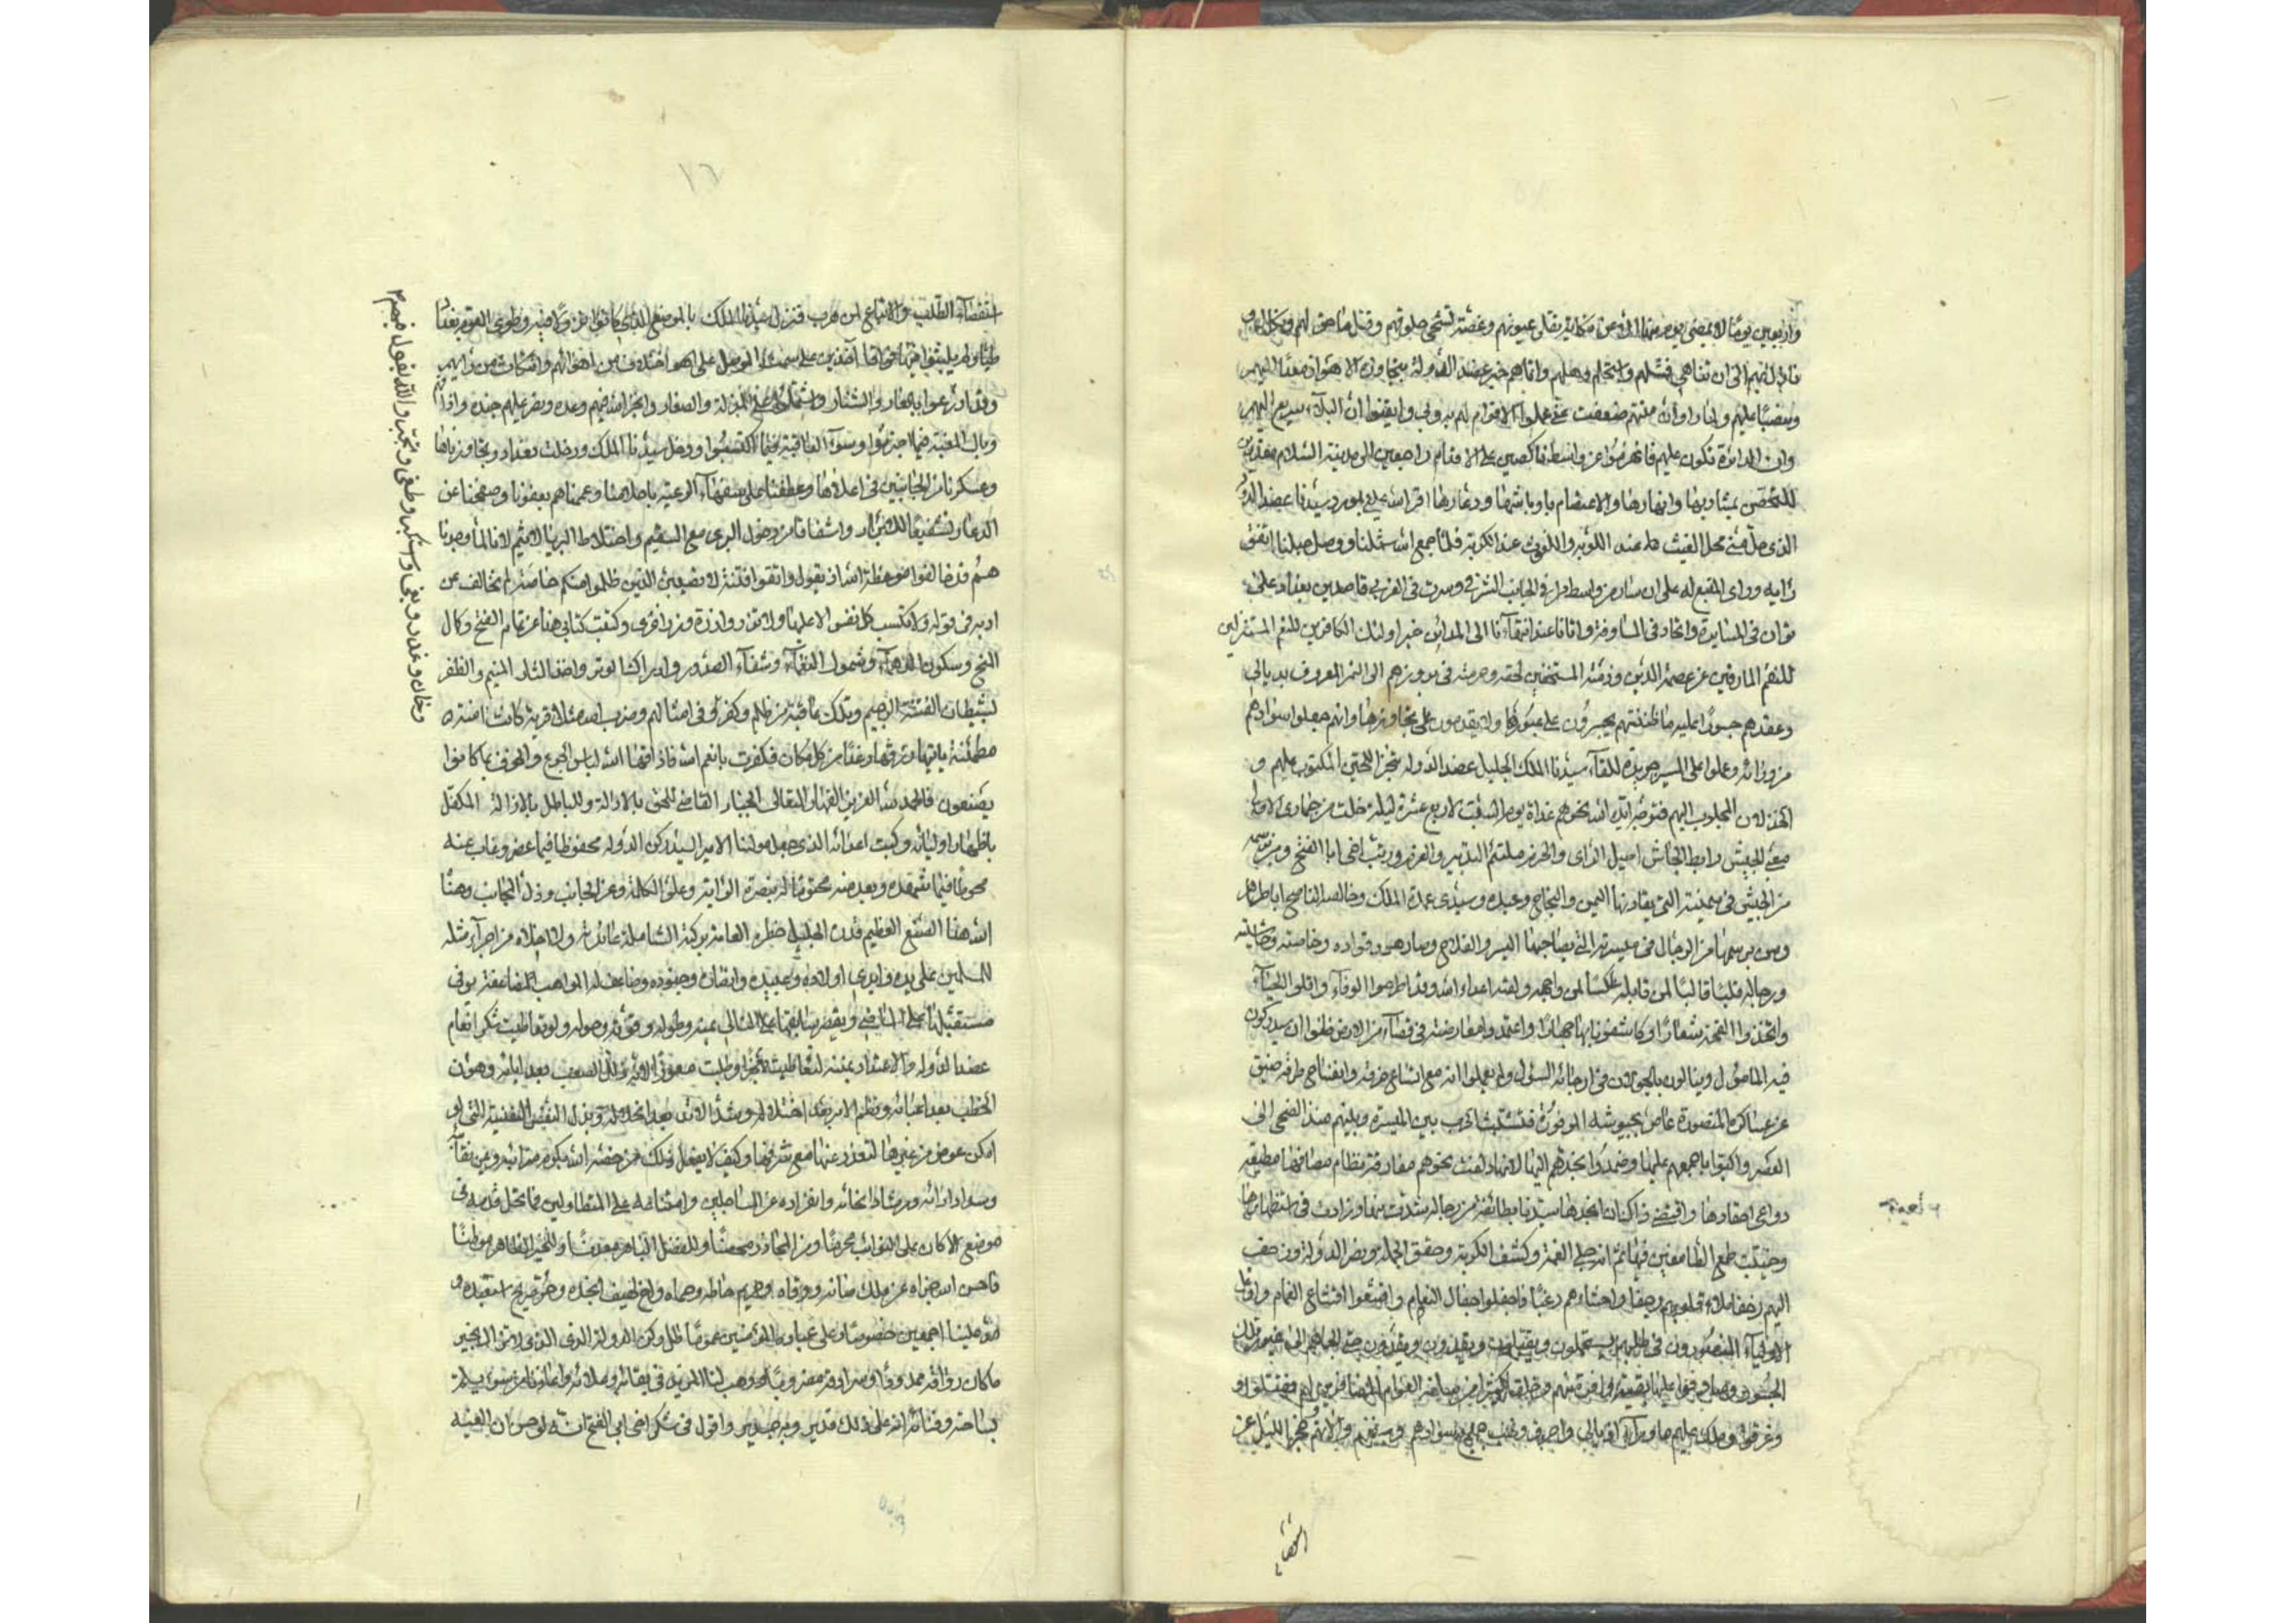 واربعين يوما لا يمضي يوم منها الا وعن مكايد تقذى عيونهم وغصة تشجى حلوقهم وقتل ما هو لهم
فادل لهم الى ان تناهى فشلهم وانحلهم واتاهم خبر عضد الدولة بتجاوزه الاهواز مغذا اليهم
ومغضبا عليهم وراوا ان منتهم ضعفت عن الاقدام وايقنوا ان البلاء سريع اليهم
وان الدائرة تكون عليهم فانهزموا عن واسط ناكصين على الاقدام راجعين الى مدينة السلام مقدرين
للتحصن بمشاربها وانهارها والاعتصام باوباشها ودعارها اقر الله عيني بورود سيدنا عضد الدولة
الذي حل مني محل الغيث عند اللوبة والغوث عند الكربة فلما جمع الله شملنا ووصل حبلنا اتفق
رايه ورأي التبع له على ان سار من واسط في الجانب الشرقي وسرت في الغربي قاصدين بغداد على
توان في المسايرة واتحاد في المشاورة واتانا عند انتهائنا الى المدائن خبر اولئك الكافرين للنعم المستنزلين
للنقم المارقين عن عصمة الدين وذمته المستخفين بحقه وحرمته في بروزهم الى النهر المعروف بديالى
وعقدهم جسورا عليه ما ظننتهم يجسرون على عبورها ولا يقدمون على تجاوزها وانهم جعلوا سوادهم
من ورائه وعملوا على المسير جريدة للقاء سيدنا الملك الجليل عضد الدولة تنجزا للحين المكتوب عليهم و
الخذلان المجلوب اليهم فتوجه ايده الله نحوهم غداة يوم السبت لاربع عشرة ليلة خلت من جمادى الاولى
معبئ الجيش رابط الجاش اصيل الراي والحزم ملتئم التدبير والعزم ورتب اخي ابا الفتح ومن برسمه
من الجيش في ميمنته التي يقارنها اليمن والنجاح وعبده وسيدي عمدة الملك وخالصه الناصح ابا طاهر
ومن برسمهما من الرجال في ميسرته التي يصاحبها اليسر والفلاح وصار هو وقواده وخاصته وحاشيته
ورجاله قلبا قالبا لمن قابله عاكسا لمن واجهه ولقيه اعداء الله وقد اطرحوا الوفاء واقلوا الحياء
واتخذوا القحة شعارا وكاشفونا بها جهارا واعتمدوا معارضته في فضاء من الارض ظنوا ان سيدركون
فيه المامول وينالون بالجولان في ارجائه السول ولم يعلموا انه مع اتساع خرقه وانفتاح طرقه ضيق
عن عساكره المنصورة غاص بجيوشه الموفورة فنشبت الحرب بين الميسرة وبينهم منذ الضحى الى
العصر واكبوا باجمعهم عليها وصمدوا بحدهم اليها
دواعي احقادها واقتضى ذاك ان انجدها سيدنا بطائفة من رجاله شدت منها وزادت في استظهارها
وخيبت طمع الطامعين فيها ثم انه جلى الغمة وكشف الكربة وحقق الحملة ونصر الدولة وزحف
اليهم زحفا ملاء قلوبهم وجفا واحشاءهم رعبا فاجفلوا اجفال النعام وانقشعوا انقشاع الغمام
الاولياء المنصورون في طلبهم يستعملون ويقتلون ويقيدون حتى الجاهم الى عبور تلك
الجسور
وغرقوا وملك عليهم ما وراء ديالى ونهب جميع سوادهم وحجز الليل عن
استقصاء الطلب والاتباع لمن هرب فنزل سيدنا الملك بالموضع الذي كانوا نزولا فيه وطوى القوم بغداد
طيا ولم يلبثوا فيها فواقا آخذين على سمت الموصل على اختلاف من اهوائهم وانتكاث من رأيهم
وقد ادرعوا بالعار والشنار واشتملوا على المذلة والصغار وانجز الله فيهم وعده ونصر عليهم جنده واذاقهم
وبال المغبة فيما اجترموا وسوء العاقبة فيما اكتسبوا ودخل سيدنا الملك ودخلت بغداد وتجاوزناها
وعسكرنا من الجانبين في اعلاها وعطفنا على سفهاء الرعية باصلاحنا وعممناهم بعفونا وصفحنا عن
الدعار تشفيعا للاخيار واشفاقا من دخول البريء مع السقيم واختلاط البر بالاثيم لانا لما وجدنا
هم قد خالفوا موعظة الله اذ يقول واتقوا فتنة لا تصيبن الذين ظلموا منكم خاصة لم نخالف عن
ادبه في قوله ولا تكسب كل نفس الا عليها ولا تزر وازرة وزر اخرى وكتبت كتابي هذا عن تمام الفتح وكمال
النجح وسكون الدهماء وشمول النعماء وشفاء الصدور وادراك الوتر واخذ الثار المنيم والظفر
بشيطان الفتنة الرجيم وتلك عاقبة من ظلم وكفر وفي امثالهم وضرب الله مثلا قرية كانت آمنة
مطمئنة ياتيها رزقها رغدا من كل مكان فكفرت بانعم الله فاذاقها الله لباس الجوع والخوف بما كانوا
يصنعون فالحمد لله العزيز القهار المتعالي الجبار القاضي للحق بالادالة وللباطل بالازالة المتكفل
باظهار اوليائه وكبت اعدائه الذي جعل مولانا الامير السيد ركن الدولة محفوظا فيما حضر وغاب عنه
محوطا فيما شهده وبعد منه محتوما له بنصرة الراية وعلو الكلمة وعز الجانب وذل المجانب وهنا
الله هذا الصنع العظيم قدره الجليل خطره العامة بركته الشاملة عائدته ولا اخلاه من اجراء مثله
للمسلمين على يده وايدي اولاده وعبيده وجنوده وضاعف له المواهب المضاعفة يوفي
مستقبلها على الماضي ويقصر سالفها على التالي بمنه وطوله وقوته وحوله ولو تعاطيت شكر انعام
عضد الدولة والاعتداد بمننه لتعاطيت معجزا وطلبت معوزا لانه ذلل الصعب بعد ابائه وهون
الخطب بعد اعيائه ونظم الامر بعد اختلاله وشد الازر بعد انحلاله وبذل النفس النفيسة التي لو
امكن عوض من غيرها لتعذر عنها مع شرفها وكيف لا يفعل ذلك من خصه الله بكرم مناقبه ويمن نقابه
وسداد ارائه ورشاد انحائه وانفراده عن المساجلين وامتناعه على المتطاولين فما تحل قدمه في
موضع الا كان على النوائب محرما ومن المحاذر محصنا وللفضل الباهر معدنا وللخير الظاهر موطنا
فاحسن الله جزاءه عن ملك صانه ووقاه وحريم حاطه وحماه واخ لهيف انجده وحر صريح استعبده و
علينا اجمعين خصوصا وعلى عباده المؤمنين عموما ظل ركن الدولة الذي لا نزال بخير
ما كان رواقه ممدودا ووهب لنا المزيد في بقائه وعلائه واعاذنا من سوء يلم
بساحته وفنائه انه على ذلك قدير وبه جدير واقول في شكر اخي ابي الفتح انه لو
وخان وغدر وبغى واستكبر وطغى وتجبر والله يقول